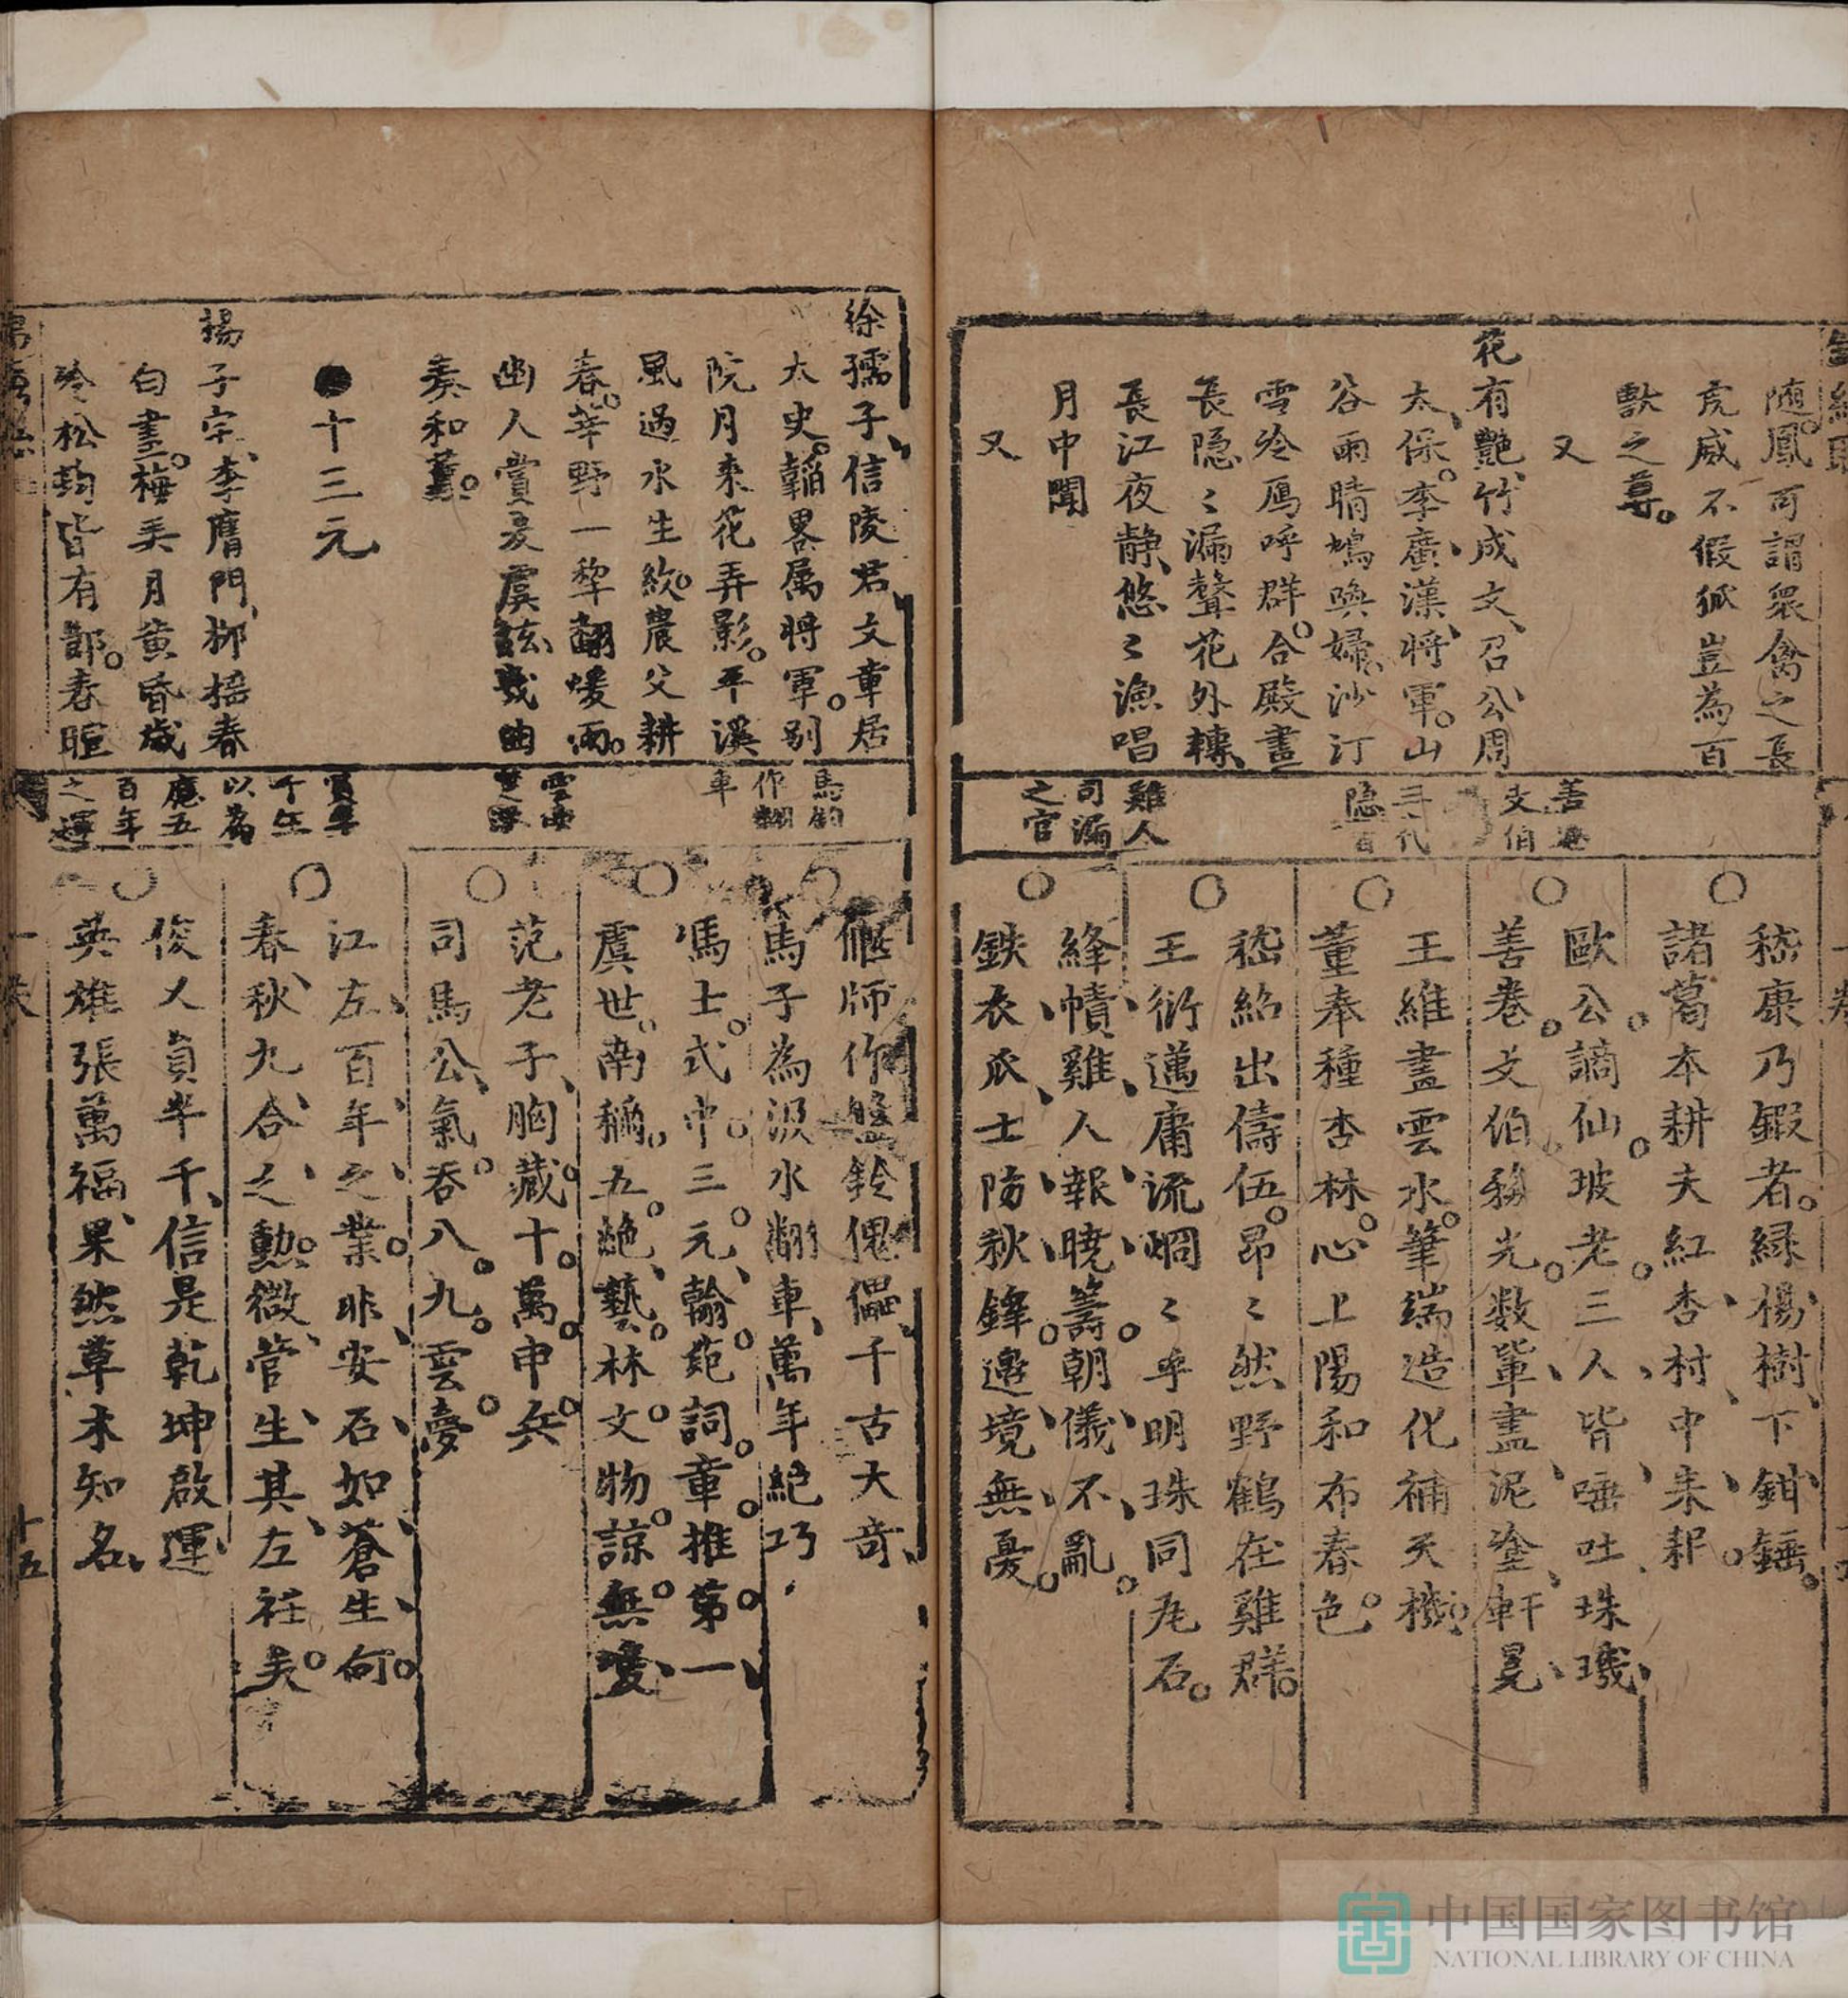 随鳳可謂衆禽之長
虎威不假狐豈為百
獸之尊
又
花有艷竹成文召公周
太保李廣漢將軍山
谷雨晴鳩喚婦沙汀
雪冷鴈呼群合殿晝
長隐〻漏聲花外轉
長江夜静悠〻漁唱
月中聞
又
善卷
支伯
三代
隐百
雞人
司漏
之官
嵇康乃鍛者緑楊樹下鉗錘
諸葛本耕夫紅杏村中耒耜
歐公謫仙坡老三人皆唾吐珠璣
善卷支伯務光数軰盡泥塗軒冕
王維畫雲水筆端造化補天機
董奉種杏林心上陽和布春色
嵇紹出儔伍昂〻然野鶴在雞群
王衍邁庸流烱〻乎明珠同瓦石
絳幘雞人報曉籌朝儀不亂
鉄衣瓜士防秋鋒邉境無憂
徐孺子信陵君文章居
太史韜畧属將軍别
院月来花弄影平溪
風過水生紋農父耕
春莘野一犂翻煖雨
幽人賞夏虞絃幾曲
奏和薰
●十三元
楊子宗李膺門栁梧春
白晝梅美月黄昏歲
冷松筠皆有節春暄
馬鈞
作翻
車
雲夢
千年
以為
應五
百年
之運
偃師作盤鈴傀儡千古大竒
馬子為汲水翻車萬年絕巧
馮士式中三元翰苑詞章推第一
虞世南稱五絶藝林文物諒無雙
范老子胸藏十萬甲兵
司馬公氣吞八九雲夢
江左百年之業非安石如蒼生何
春秋九合之勲微管生其左衽矣
俊人員半千信是乾坤啟運
英雄張萬福果然草木知名
十五
中国国家图书馆
NATIONAL LIBRARY OF CHINA